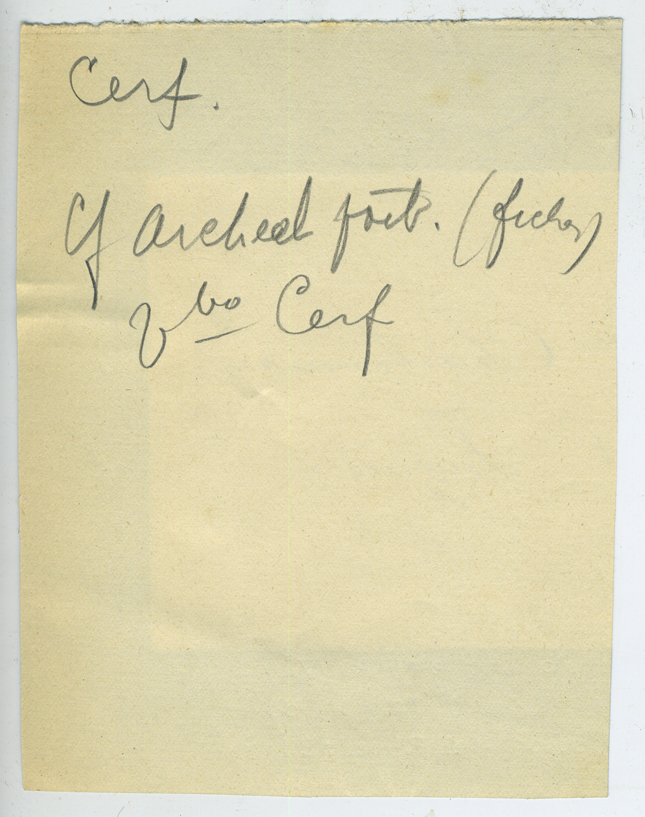 Cerf.
Cf Archeol port. (fiches)
vbo Cerf